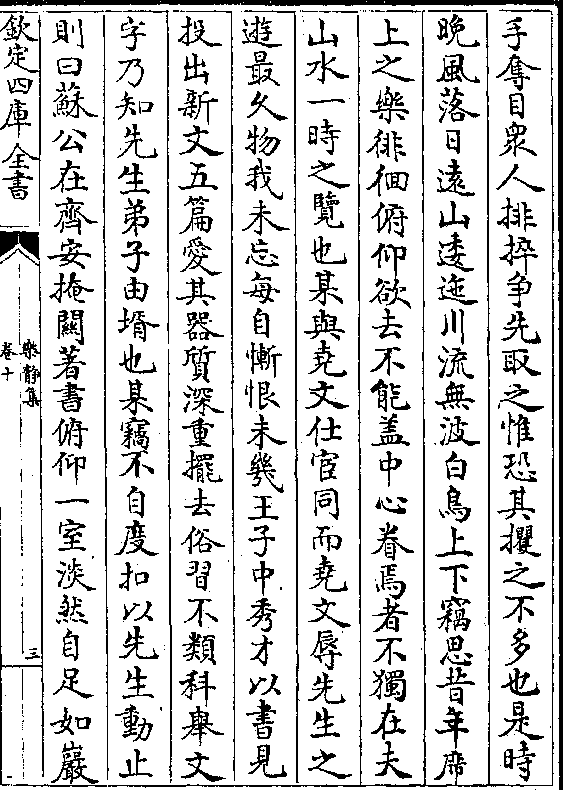 手奪目衆人排捽争先取之惟恐其攫之不多也是時
晚風落日遠山逶迤川流無波白鳥上下竊思昔年席
上之樂徘徊俯仰欲去不能盖中心眷焉者不獨在夫
山水一時之覽也某與堯文仕宦同而堯文辱先生之
遊最久物我未忘每自慚恨未幾王子中秀才以書見
投出新文五篇愛其器質深重擺去俗習不類科舉文
字乃知先生弟子由壻也某竊不自度扣以先生動止
則曰蘇公在齊安掩闗著書俯仰一室淡然自足如巖
欽定四庫全書
樂静集
卷十
三